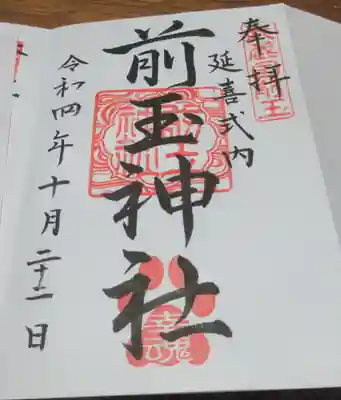 奉拝
延喜式内
前玉神社
令和四年十月二十一日
幸魂